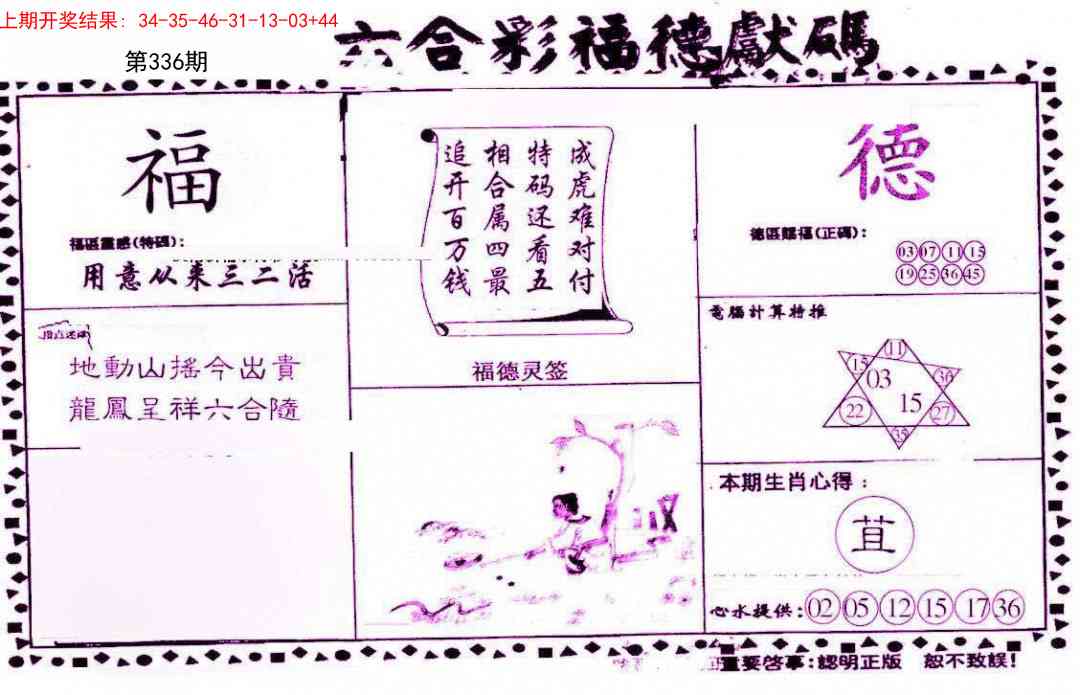 上期开奖结果：34-35-46-31-13-03+44
第336期
六合彩福德獻碼
福
福區靈感(特碼)：
用意从来三二活
地動山搖今出貴
龍鳳呈祥六合隨
成虎难对付
特码还看五
相合属四最
追开百万钱
福德灵签
德
德區賜福(正碼)：
03 07 11 15
19 25 36 45
電腦計算特推
11
15 36
03
15
22 27
35
本期生肖心得：
苴
心水提供：02 05 12 15 17 36
重要啓事：認明正版 恕不致誤！